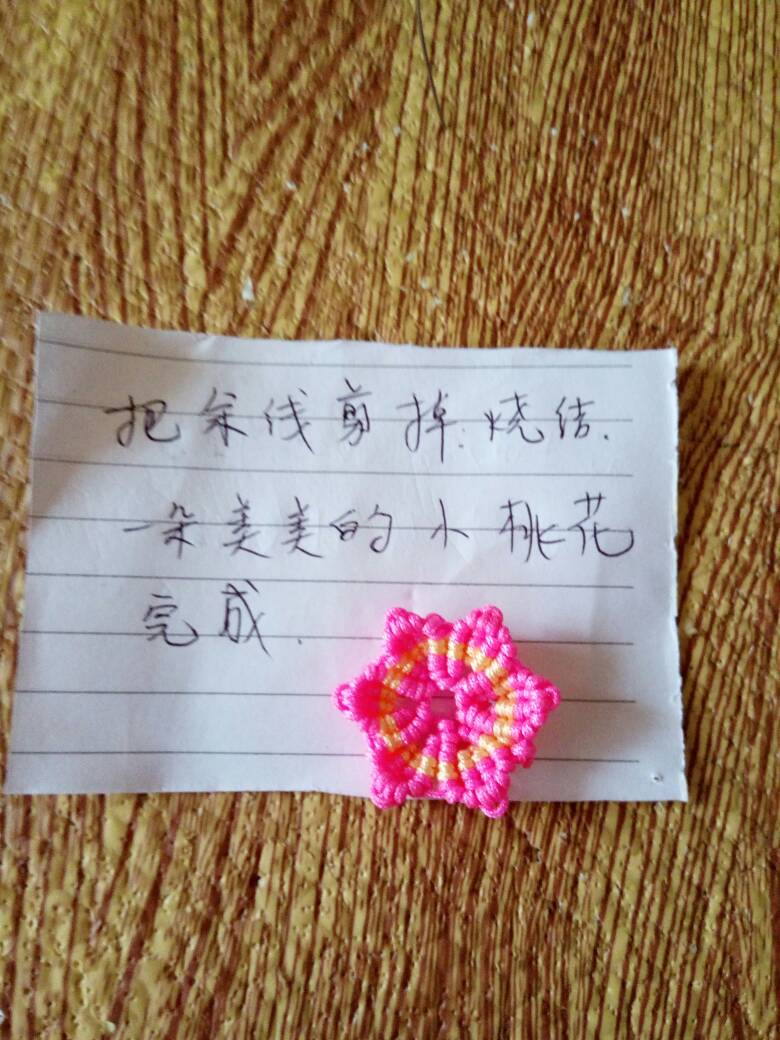 把余线剪掉.烧结.
一朵美美的小桃花
完成.